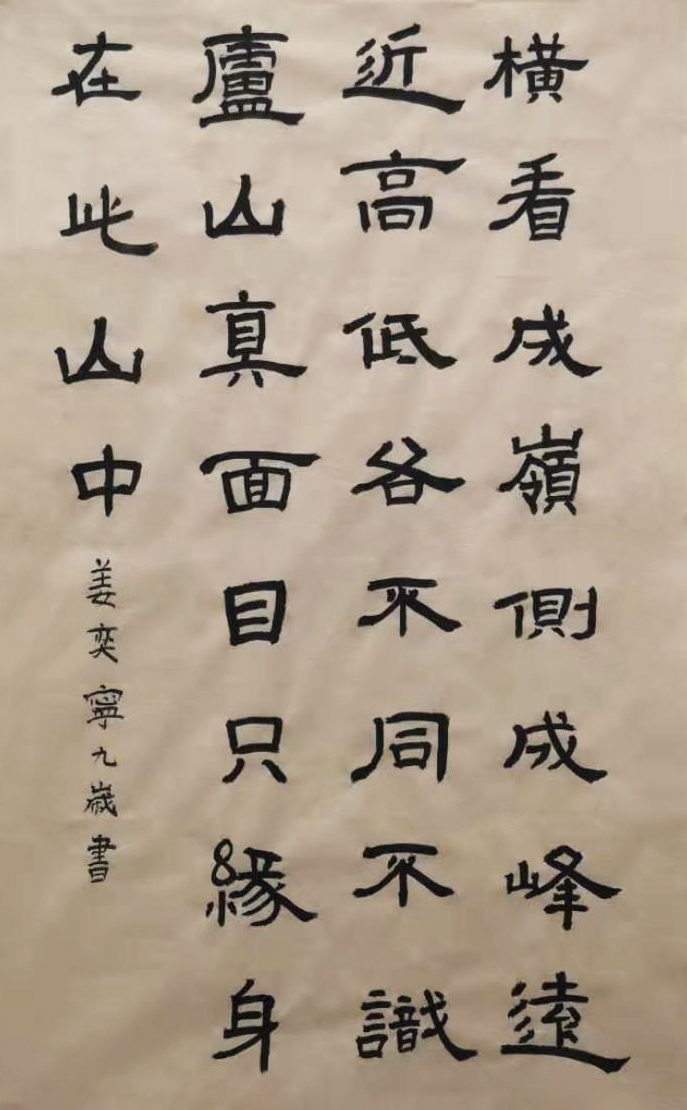 橫看成嶺側成峰遠
近高低各不同不識
廬山真面目只緣身
在此山中
姜奕寧九歲書